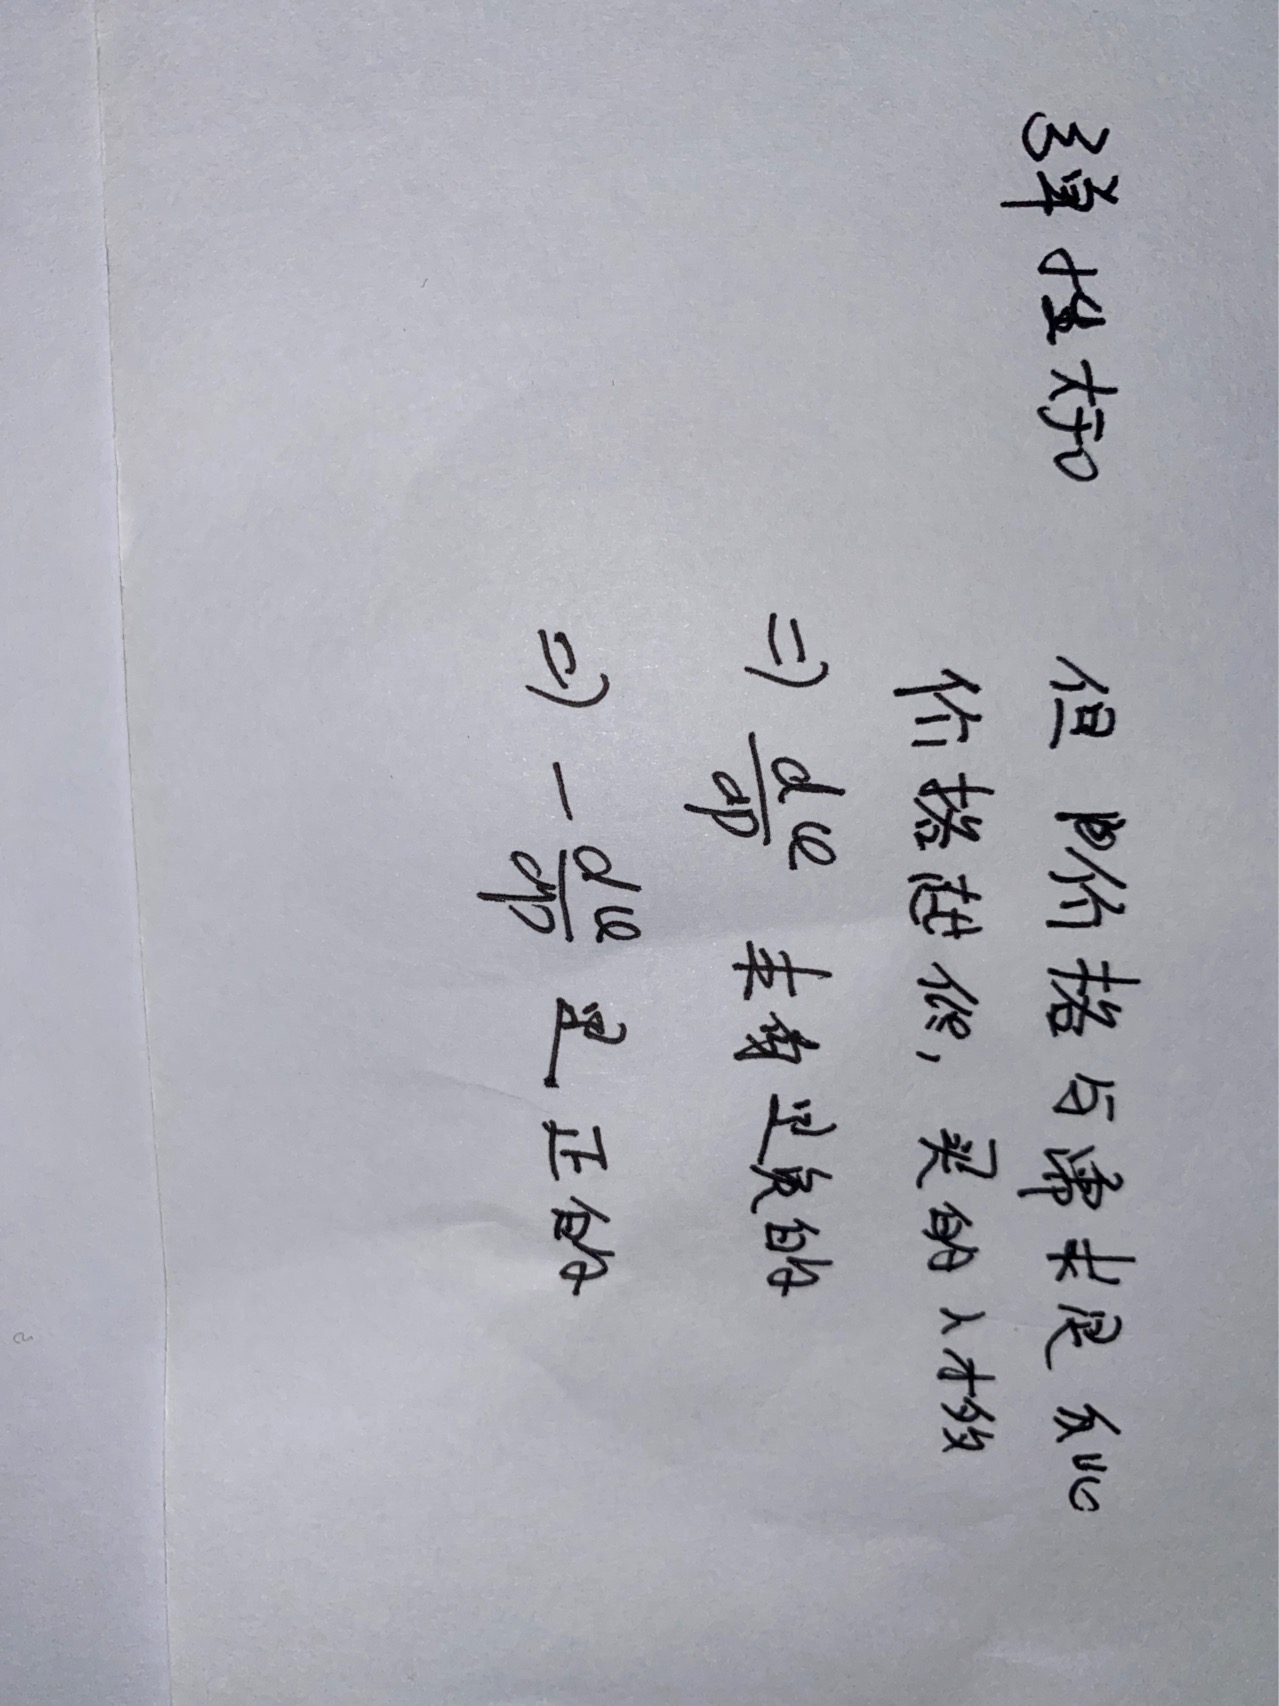 弹性大于0
但 价格与需求是反比
价格越低, 买的人才多
=> dφ/dp 本身是负的
=> - dφ/dp 是正的